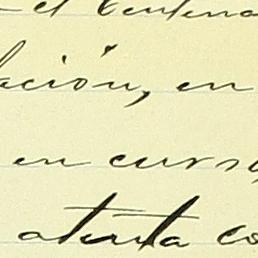 el Centena
lación, en
en curso,
atenta co